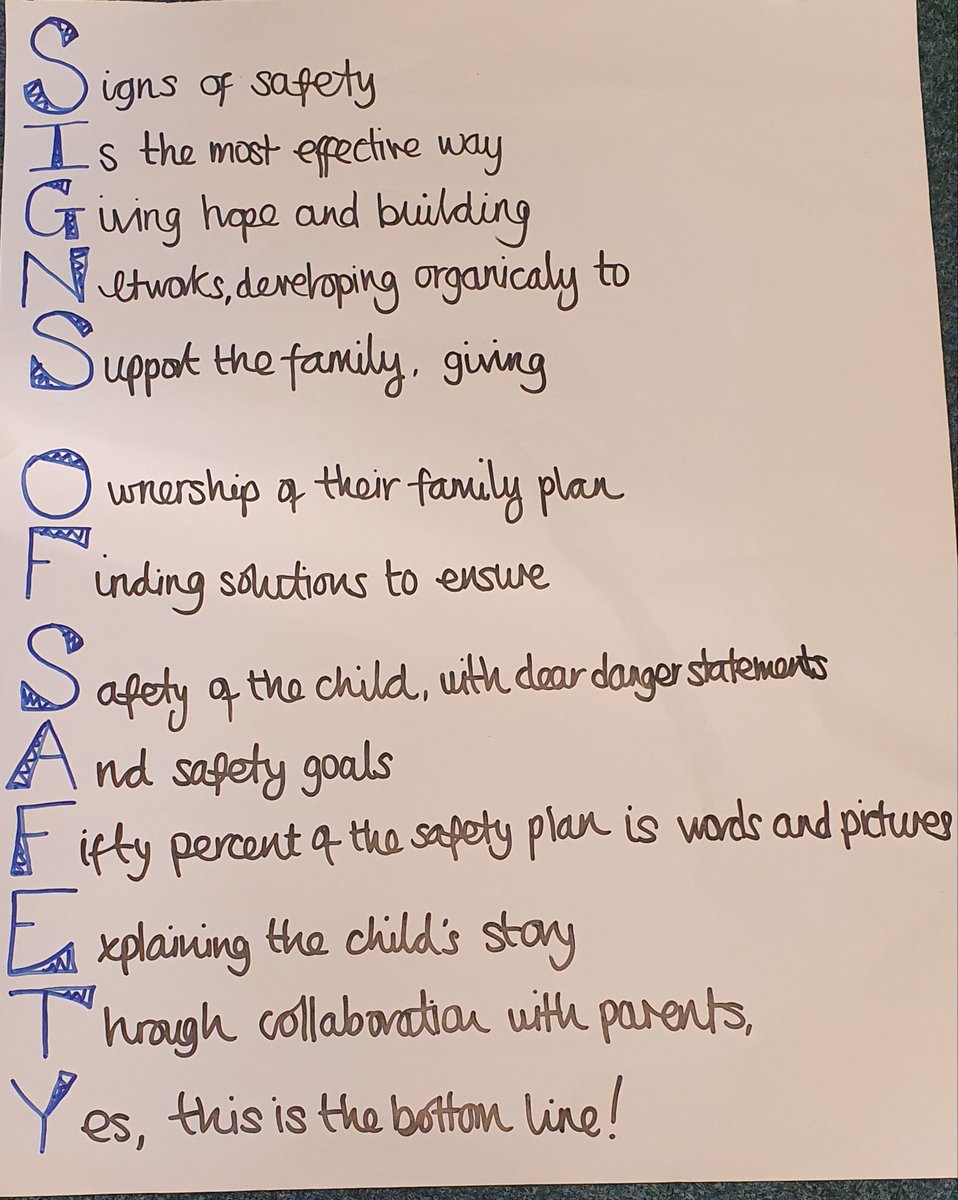 Signs of safety
Is the most effective way
Giving hope and building
Netwoks, developing organicaly to
Support the family, giving
Ownership of their family plan
Finding solutions to ensure
Safety of the child, with clear danger statements
And safety goals
Fifty percent of the safety plan is words and pictures
Explaining the child's story
Through collaboration with parents,
Yes, this is the bottom line!